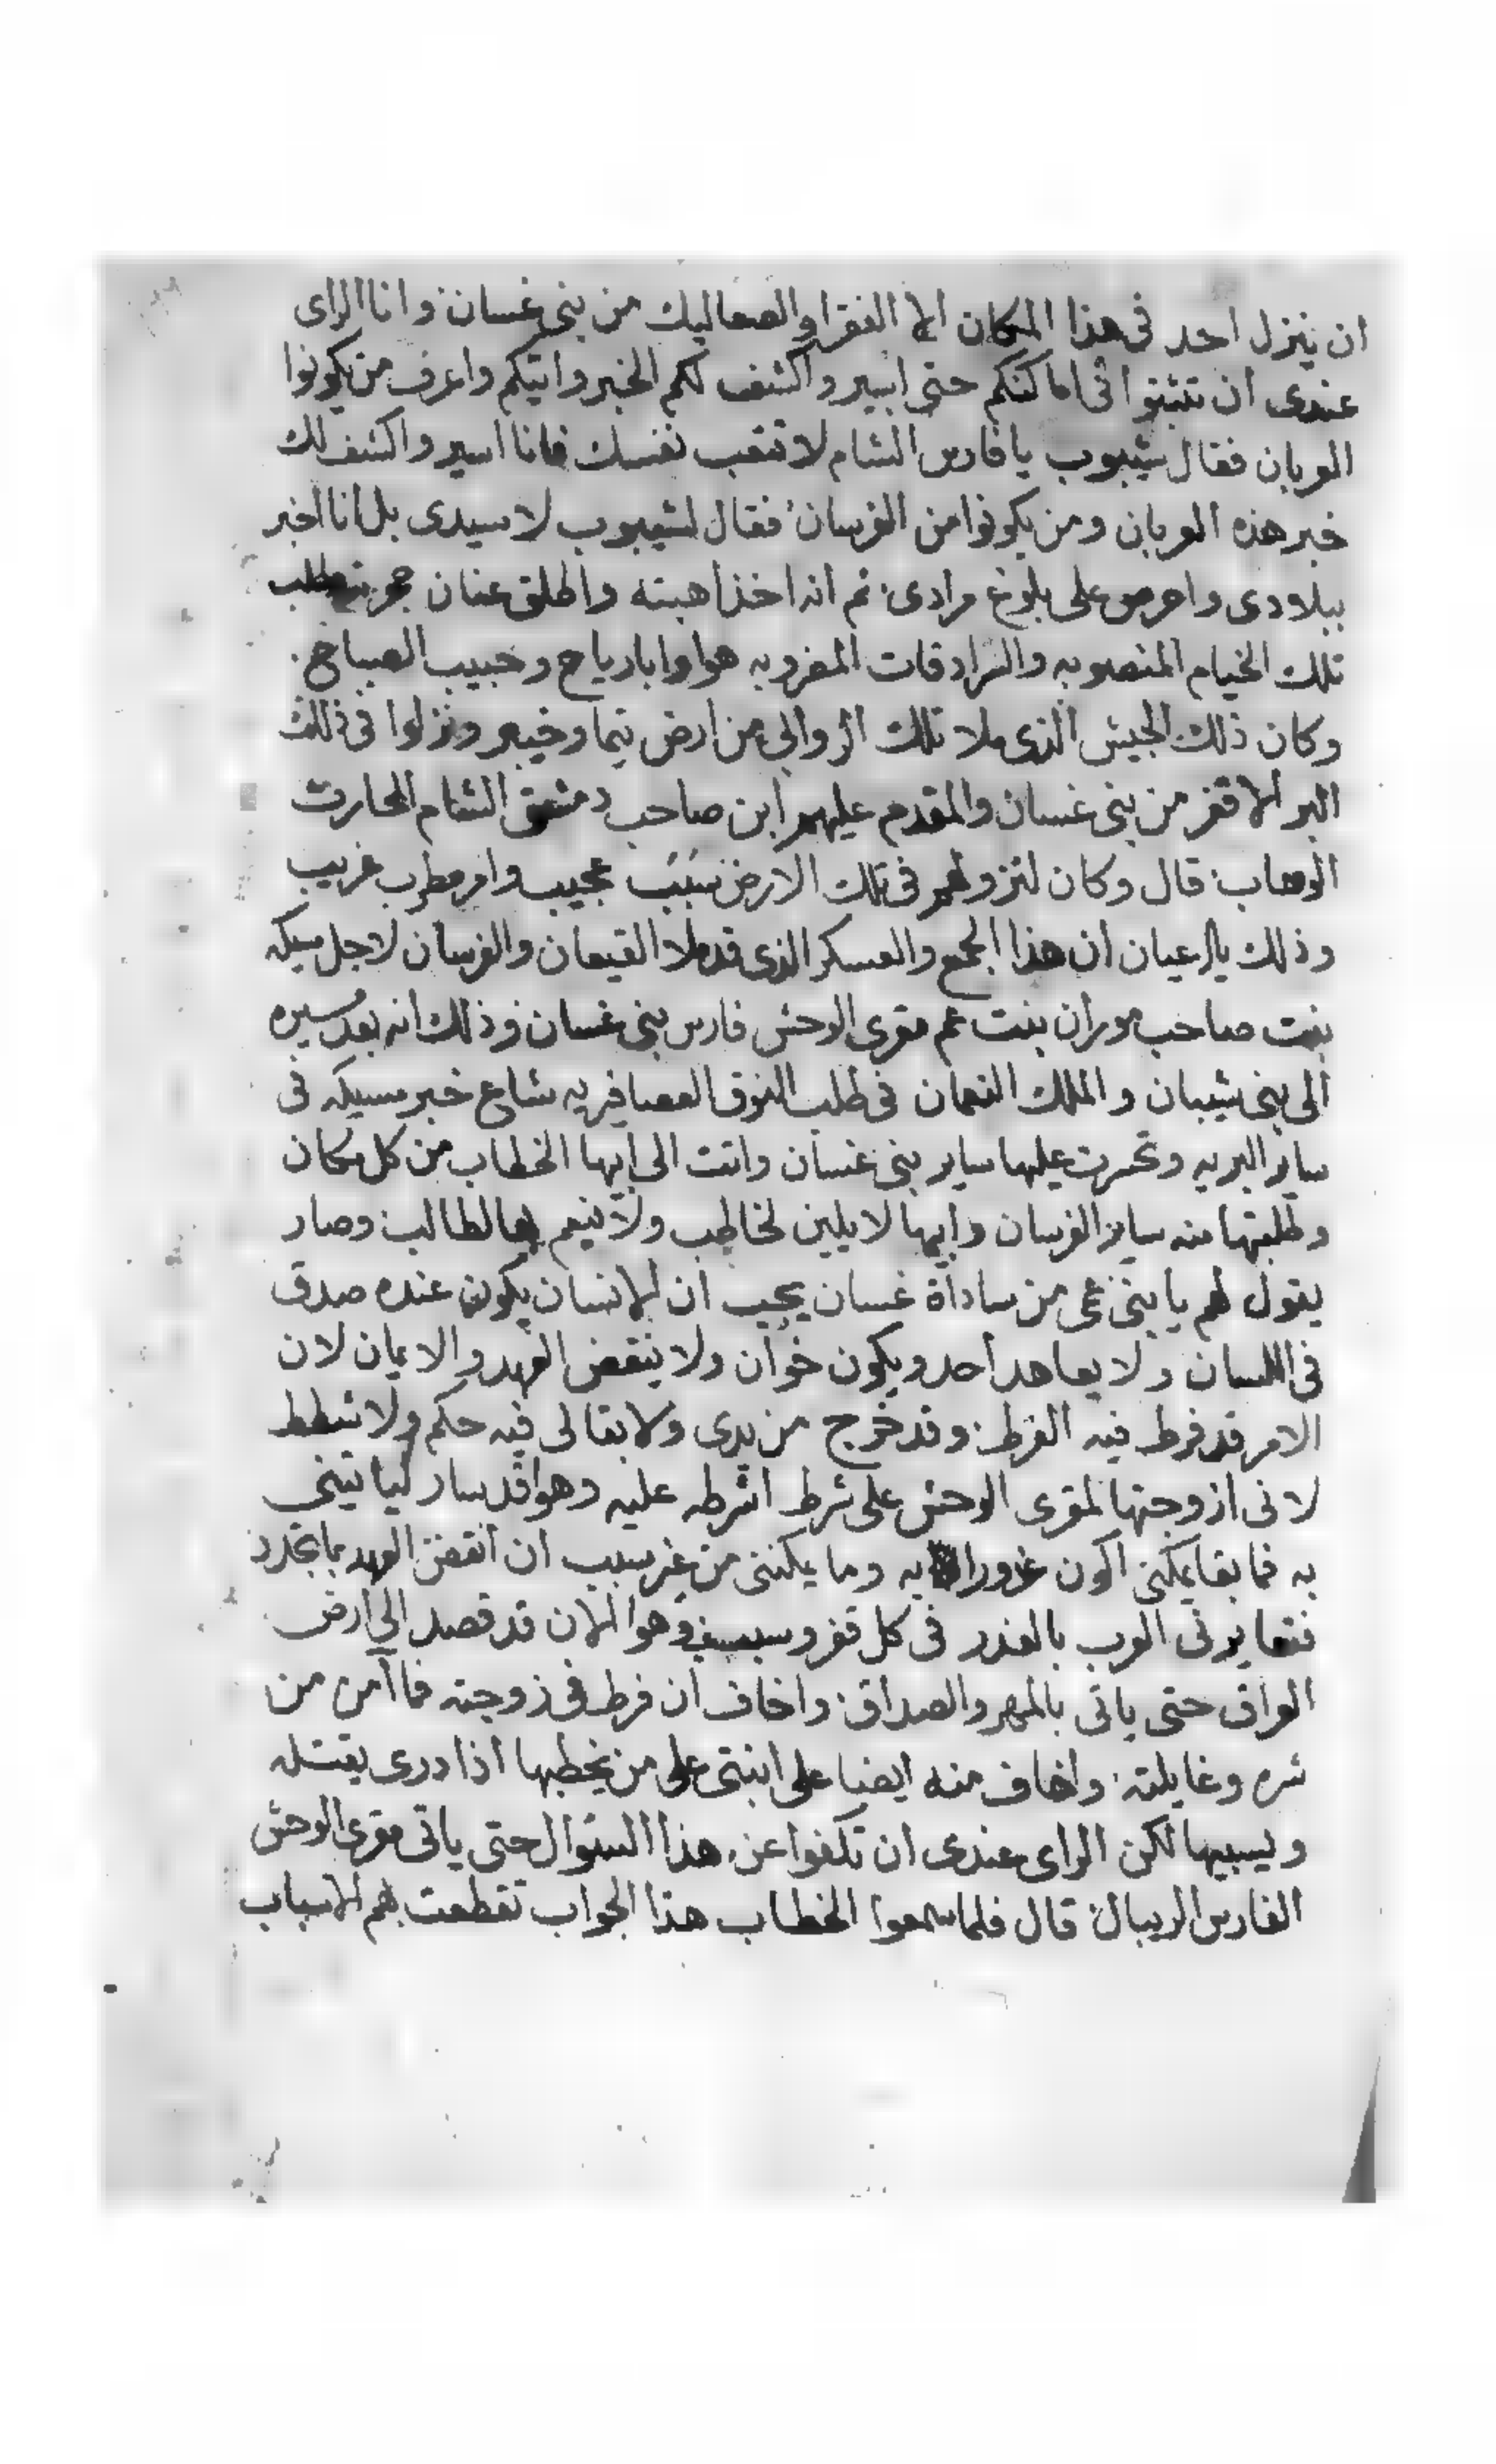 ان ينزل احد فى هذا المكان الا الفقرا والصعاليك من بنى غسان وانا الراى
عندى ان تثبتوا فى اماكنكم حتى اسير واكشف لكم الخبر واتيكم واعرف من يكونوا
العربان فقال شيبوب يا فارس الشام لا تتعب نفسك فانا اسير واكشف لك
خبر هذه العربان ومن يكونوا من الفرسان فقال لشيبوب لا سيدى بل انا اخبر
ببلادى واحرص على بلوغ مرادى ثم انه اخذ اهبته واطلق عنان يطلب
تلك الخيام المنصوبه والسرادقات المضروبه هوا وابا رياح وحبيب الصباح
وكان ذلك الجيش الذى ملا تلك الروابى من ارض تيما وخيبر ونزلوا فى ذلك
البر الاقفر من بنى غسان والمقدم عليهم ابن صاحب دمشق الشام الحارث
الوهاب قال وكان لنزولهم فى تلك الارض سبب عجيب وامر مطرب غريب
وذلك يا اعيان ان هذا الجمع والعسكر الذى قد ملا القيعان والفرسان لاجل مسيكه
بنت صاحب حوران بنت عم مقرى الوحش فارس بنى غسان وذلك انه بعد مسيره
الى بنى شيبان والملك النعمان فى طلب النوق العصافريه شاع خبر مسيكه فى
ساير البريه وتحسرت عليها ساير بنى غسان واتت الى ابيها الخطاب من كل مكان
وطلبتها منه ساير الفرسان وابيها لا يلين لخاطب ولا ينعم بها لطالب وصار
يقول لهم يا بنى عمى من ساداة غسان يجب ان الانسان يكون عنده صدق
فى اللسان ولا يعاهد احد ويكون خوان ولا ينقض العهد والايمان لان
الامر قد فرط فيه الفرط وقد خرج من يدى ولا بقا لى فيه حكم ولا شطط
لانى ازوجتها لمقرى الوحش على شرط اشرطه عليه وهوا قد سار ليا تينى
به فما بقا يمكننى اكون غرورا به وما يمكننى من غير سبب ان انقض العهد بما تجدد
فتعايرنى العرب بالغدر فى كل قفر وسبسب وهوا الان قد قصد الى ارض
العراق حتى ياتى بالمهر والصداق واخاف ان فرط فى زوجته فما آمن من
شره وغايلته واخاف منه ايضا على ابنتى على من يخطبها اذا درى يقتله
ويسبيها لكن الراى عندى ان تكفوا عن هذا السئوال حتى ياتى مقرى الوحش
الفارس الريبال قال فلما سمعوا الخطاب هذا الجواب تقطعت بهم الاسباب